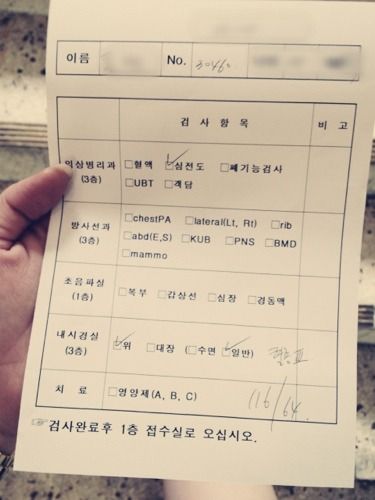 이름 No. 3046
검 사 항 목 비 고
임상병리과 (3층) □혈액 ☑심전도 □폐기능검사
□UBT □객담
방사선과 (3층) □chestPA □lateral(Lt, Rt) □rib
□abd(E,S) □KUB □PNS □BMD
□mammo
초음파실 (1층) □복부 □갑상선 □심장 □경동맥
내시경실 (3층) ☑위 □대장 (□수면 ☑일반)
치 료 □영양제(A, B, C) 116/64
☞검사완료후 1층 접수실로 오십시오.